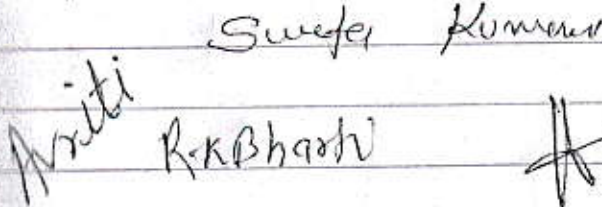 Sweta Kumari
Ariti R.K Bharti